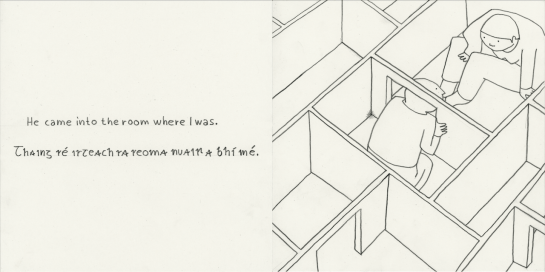 He came into the room where I was.
Thaing sé isteach sa seoma nuair a bhí mé.